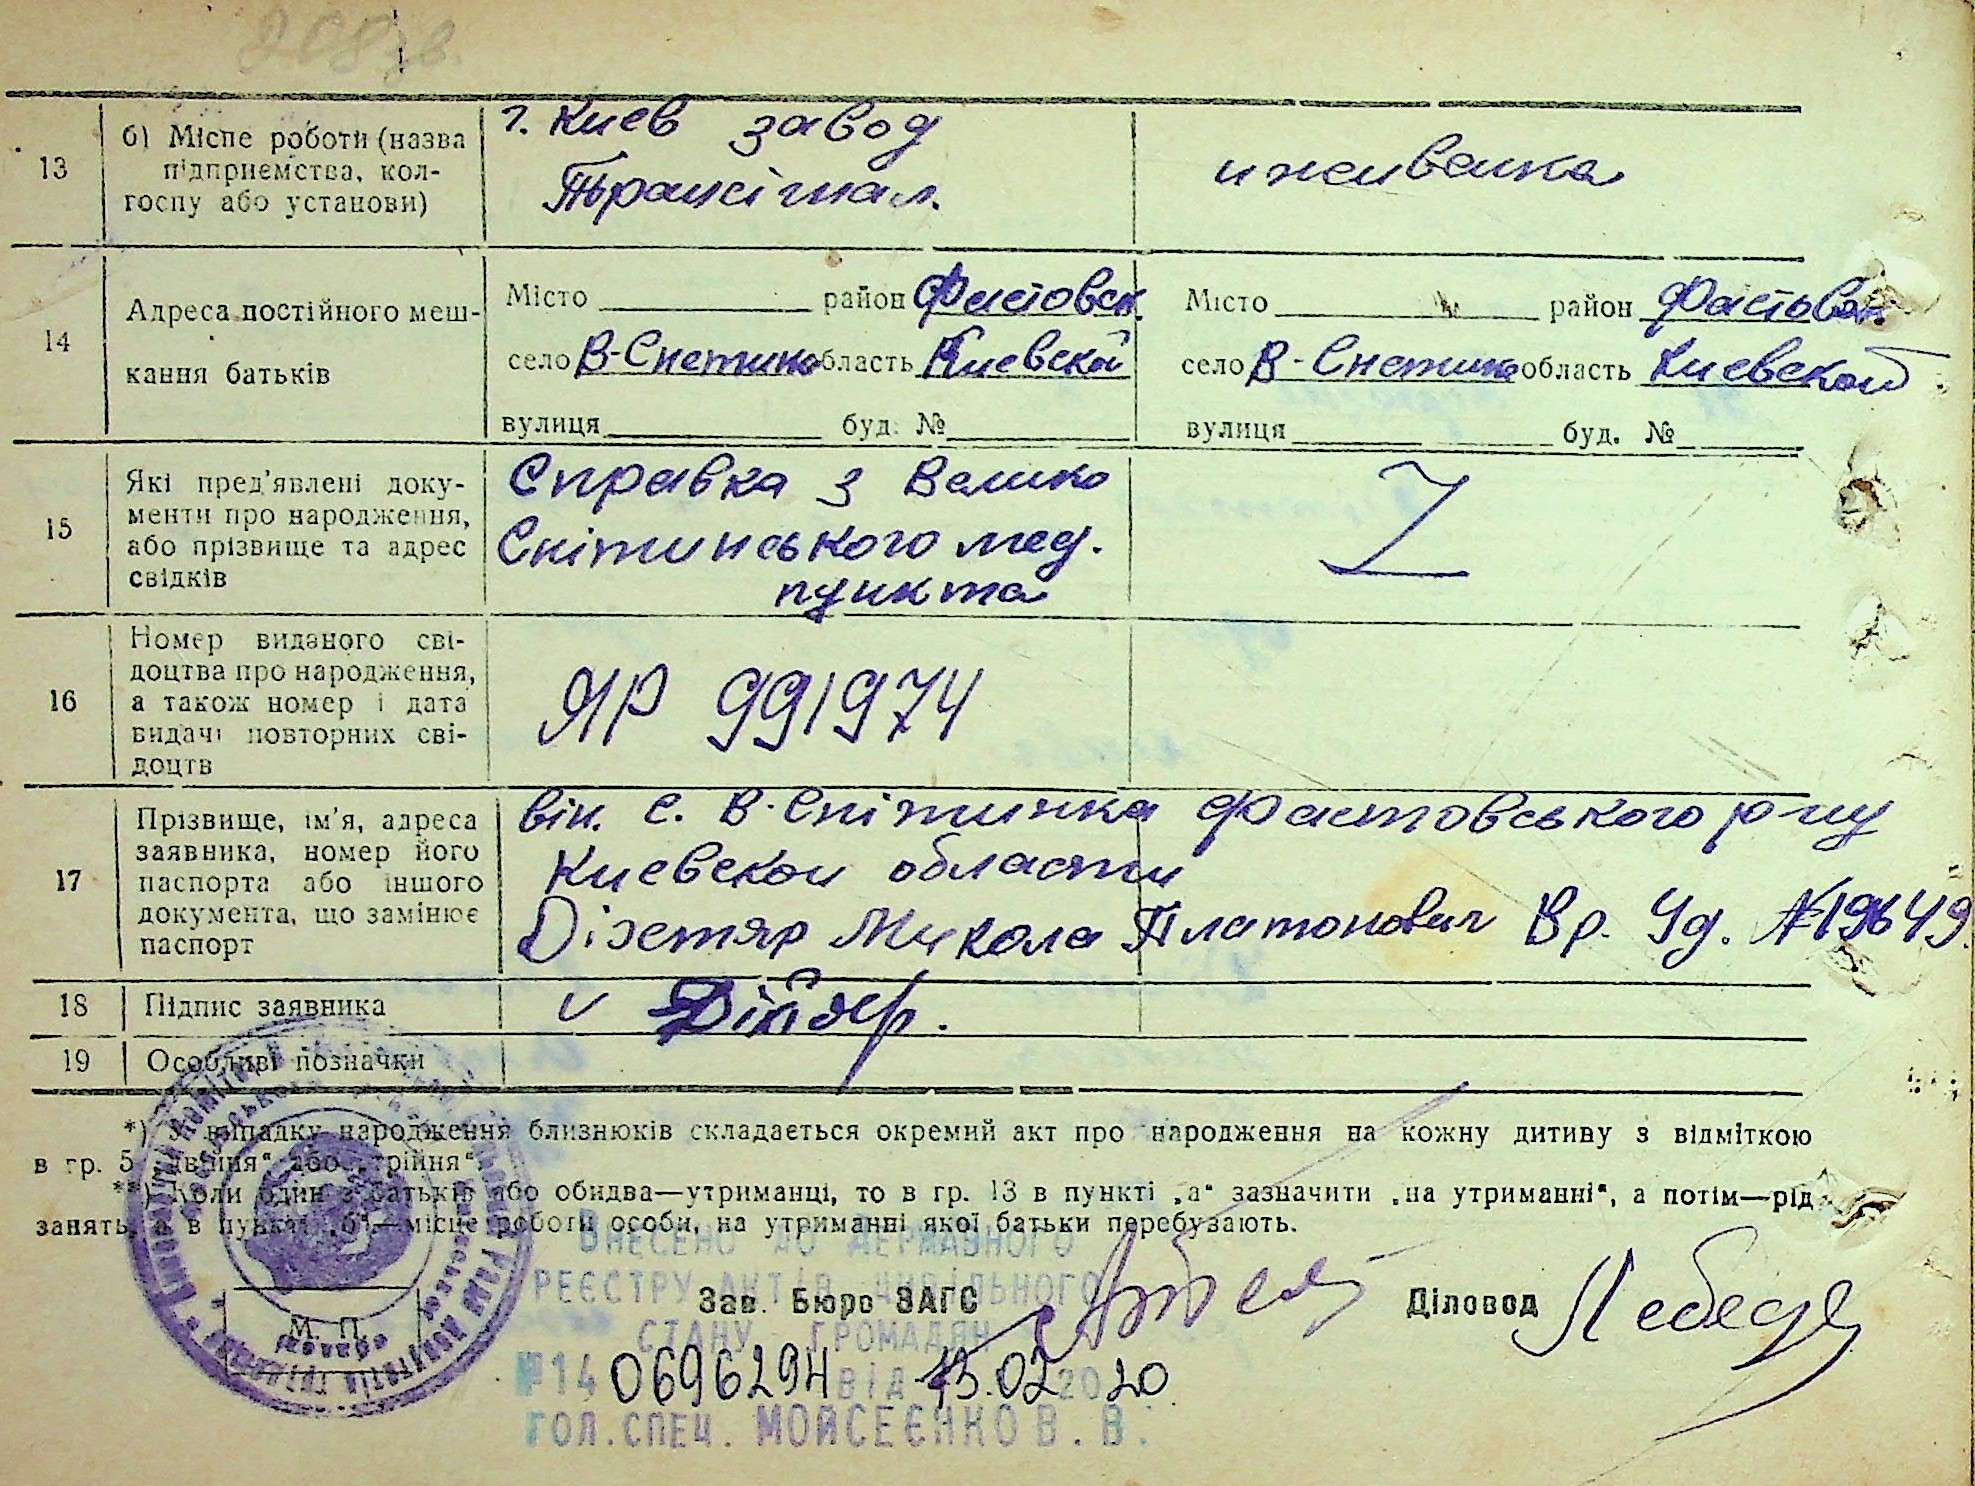 13
б) Місце роботи (назва підприємства, кол-
госпу або установи)
г. Киев завод
Транссігнал.
иждивенка
14
Адреса постійного меш-
кання батьків
Місто район Фастовск.
село В-Снетинка область Киевской
вулиця буд. №
Місто район Фастовск
село В-Снетинка область Киевской
вулиця буд. №
15
Які пред'явлені доку-
менти про народження,
або прізвище та адрес
свідків
Справка з Велико
Снітинського мед.
пункта
16
Номер виданого сві-
доцтва про народження,
а також номер і дата
видачі повторних сві-
доцтв
ЯР 991974
17
Прізвище, ім'я, адреса
заявника, номер його
паспорта або іншого
документа, що замінює
паспорт
с. В-Снітинка Фастовського р-ну
Киевской области
Діхтяр Микола Платонович Вр. Уд. №19649.
18
Підпис заявника
19
Особливі позначки
*) У випадку народження близнюків складається окремий акт про народження на кожну дитину з відміткою
в гр. 5 „двійня“ або „трійня“.
**) Коли один з батьків або обидва—утриманці, то в гр. 13 в пункті „а“ зазначити „на утриманні“, а потім—рід
занять, а в пункті „б“—місце роботи особи, на утриманні якої батьки перебувають.
ВНЕСЕНО ДО ДЕРЖАВНОГО
РЕЄСТРУ АКТІВ ЦИВІЛЬНОГО
СТАНУ ГРОМАДЯН
Зав. Бюро ЗАГС
Діловод
М. П.
№14 0696294 від 13.02 2020
ГОЛ.СПЕЦ. МОЙСЕЄНКО В.В.